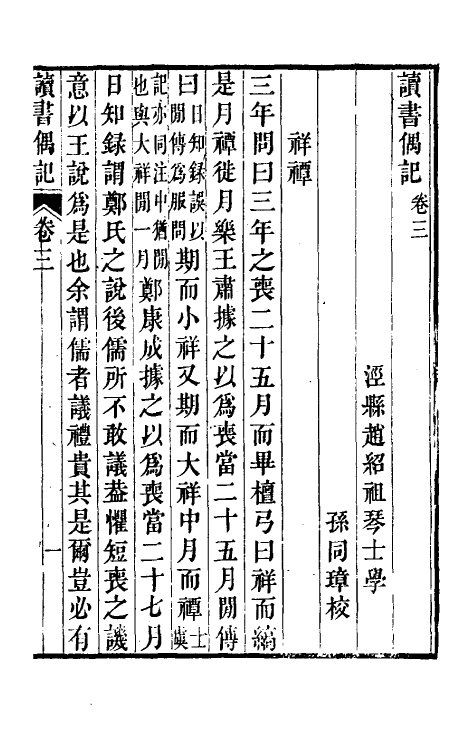 讀書偶記 卷三
涇縣趙紹祖琴士學
孫同璋校
祥禫
三年問曰三年之喪二十五月而畢檀弓曰祥而縞
是月禫徙月樂王肅據之以爲喪當二十五月閒傳
曰日知録誤以閒傳爲服問期而小祥又期而大祥中月而禫士虞
記亦同注中猶閒也與大祥閒一月鄭康成據之以爲喪當二十七月
日知録謂鄭氏之說後儒所不敢議葢懼短喪之譏
意以王說爲是也余謂儒者議禮貴其是爾豈必有
讀書偶記 卷三 一